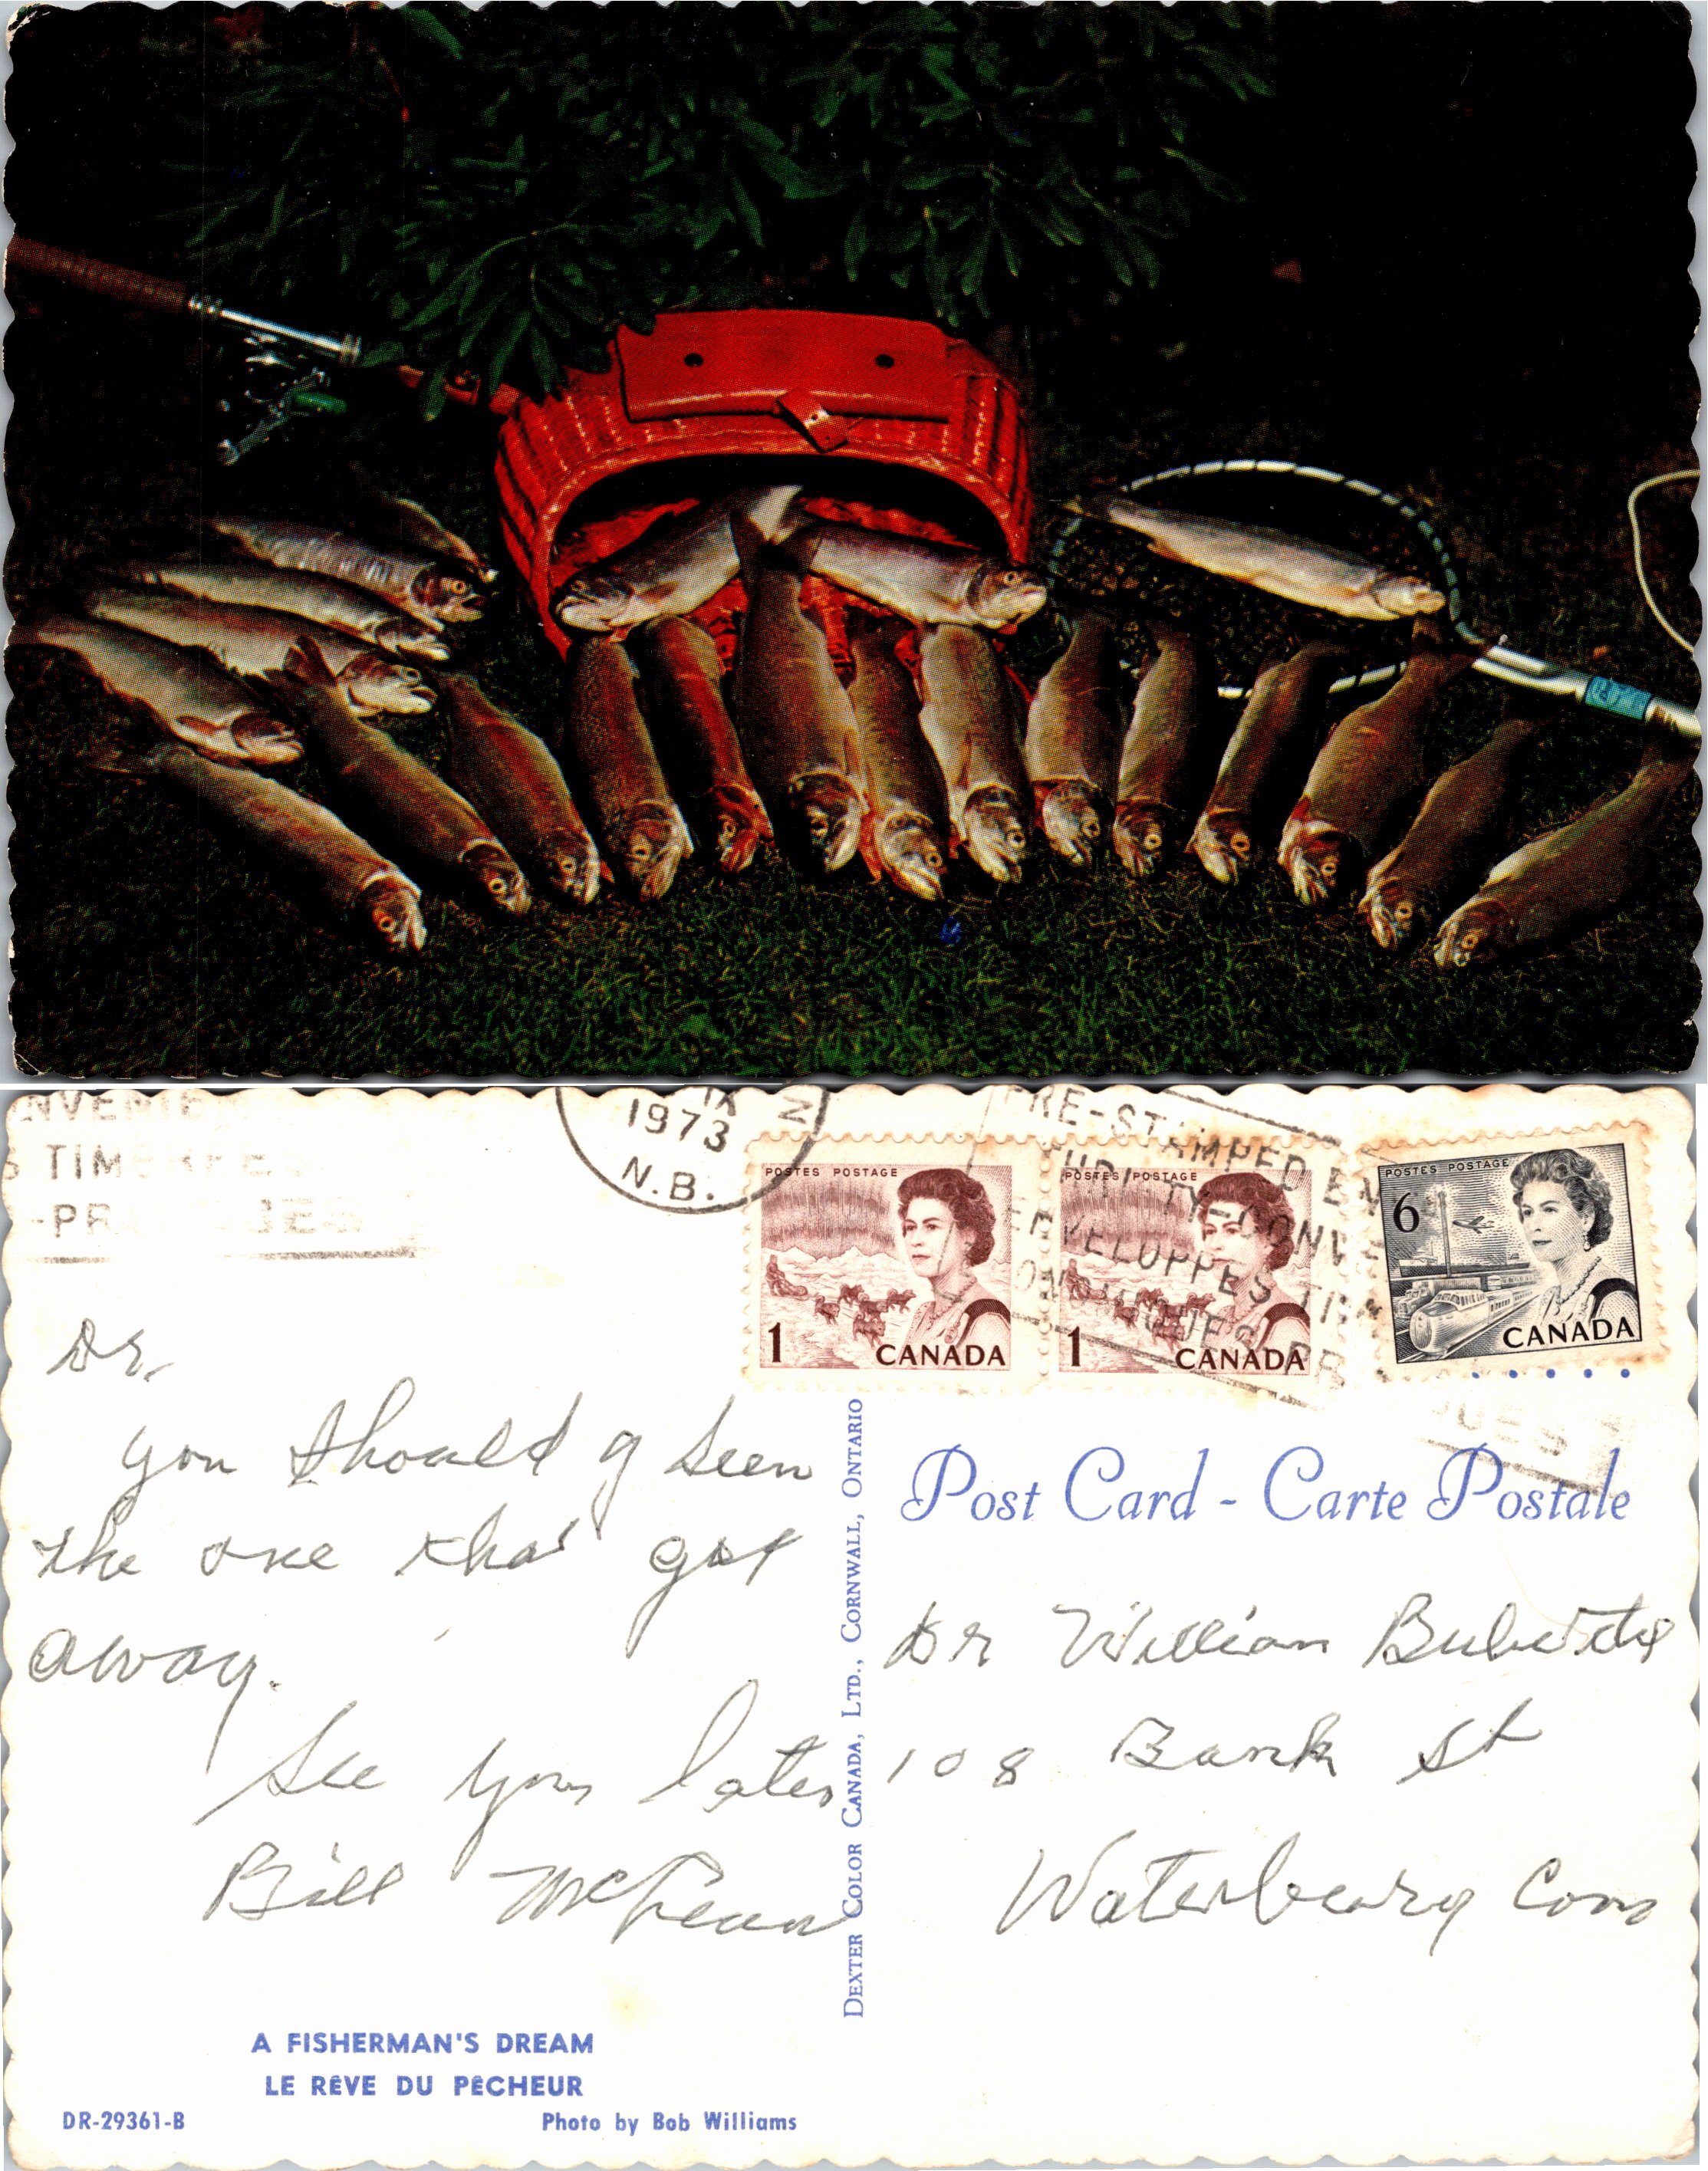 NVENIE
S TIM
-PR
IX
1973
N.B.
PRE-STAMPED EN
TY-CONVE
ENVELOPPES TIM
POSTES POSTAGE
1
CANADA
POSTES POSTAGE
1
CANADA
POSTES POSTAGE
6
CANADA
Dr.
you should of seen
the one that got
away.
See you later
Bill
DEXTER COLOR CANADA, LTD., CORNWALL, ONTARIO
Post Card - Carte Postale
Dr William
108 Bank St
Waterbury Conn
A FISHERMAN'S DREAM
LE RÊVE DU PÊCHEUR
DR-29361-B
Photo by Bob Williams